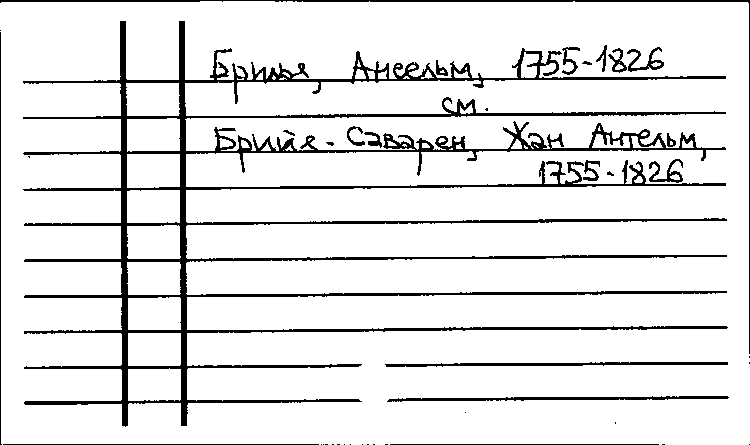 Брилья, Ансельм, 1755-1826
см.
Брийя-Саварен, Жан Антельм,
1755-1826